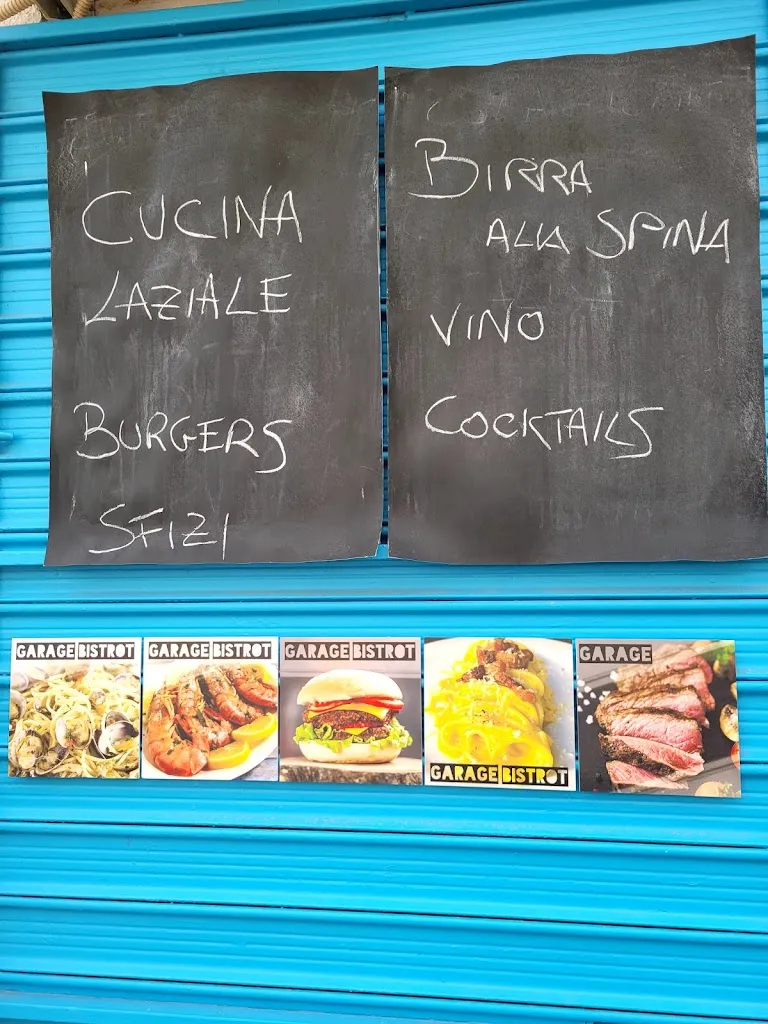 CUCINA
LAZIALE
BURGERS
SFIZI
BIRRA
ALLA SPINA
VINO
COCKTAILS
GARAGE BISTROT
GARAGE BISTROT
GARAGE BISTROT
GARAGE BISTROT
GARAGE